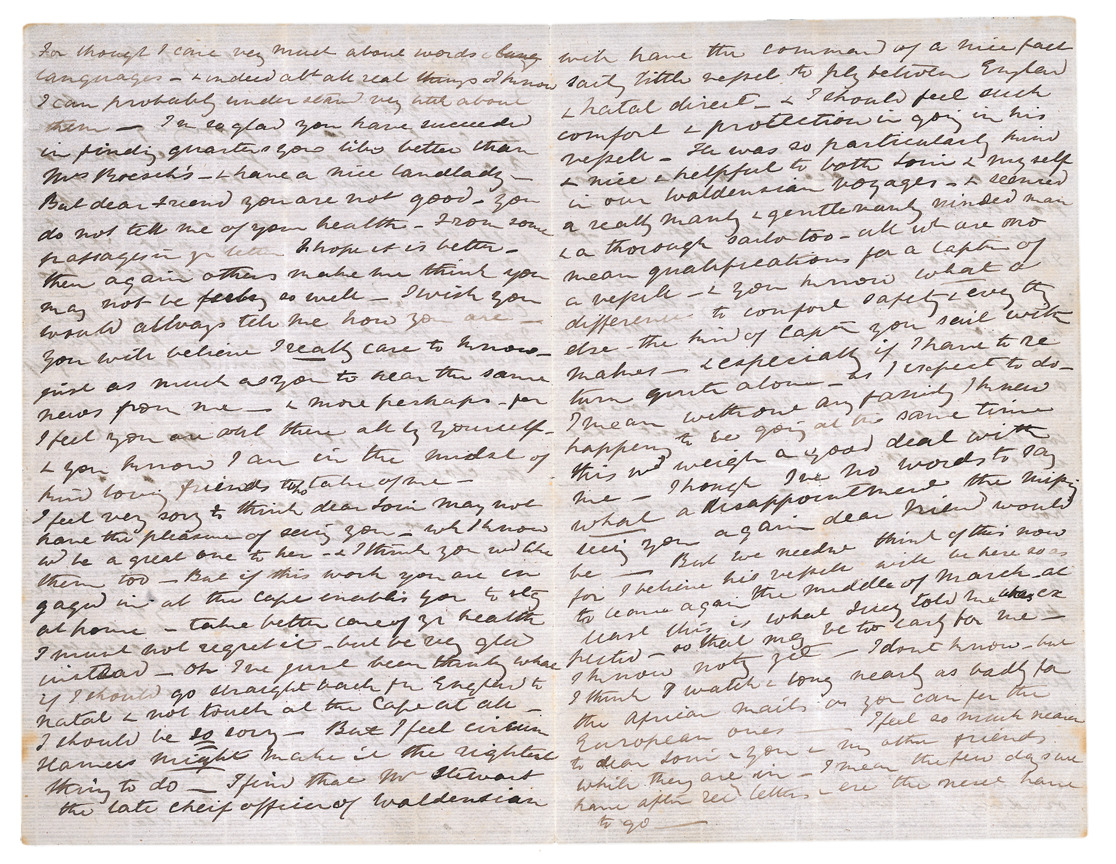 For though I care very much about words & lang
languages - & indeed abt all real things I know
I can probably understand very little about
them — I'm so glad you have succeeded
in finding quarters you like better than
Mrs Roesch's - & have a nice landlady -
But dear friend you are not good - you
do not tell me of your health - From some
passages in yr letter I hope it is better -
then again others make me think you
may not be feeling so well - I wish you
would always tell me how you are —
You will believe I really care to know -
just as much as you to hear the same
news from me — & more perhaps - for
I feel you are out there all by yourself -
& you know I am in the midst of
kind loving friends who take of me —
I feel very sorry to think dear Loui may not
have the pleasure of seeing you - wh I know
wd be a great one to her - & I think you wd like
them too — But if this work you are in
gaged in at the Cape enables you to stay
at home - take better care of yr health
I must not regret it - but be very glad
instead - Oh I've just been thinking what
if I should go straight back fr England to
Natal & not touch at the Cape at all -
I should be so sorry — But I feel certain
steamers might make it the rightest
thing to do — I find that Mr Stewart
the late cheif officer of Waldensian
will have the command of a nice fast
saily little vessel to ply between England
& Natal direct - & I should feel such
comfort & protection in going in his
vessel - He was so particularly kind
& nice & helpful to both Loui & myself
in our Waldensian voyages - & seemed
a really manly & gentlemanly minded man
& a thorough sailor too - all wh are no
mean qualifications for a captn of
a vessel - & you know what a
difference to comfort safety & every thg
else - the kind of Captn you sail with
makes - & especially if I have to re
turn quite alone - as I expect to do -
I mean without any family I knew
happeng to be going at the same time
this wd weigh a good deal with
me — I though I've no words to say
what a disappointment the missing
seeing you again dear Friend would
be — But we needn't think of this now
for I believe his vessel will be here so as
to leave again the middle of March - at
least this is what they told me was ex
pected - so that may be too early for me -
I know not yet — I dont know - but
I think I watch & long nearly as badly for
the African mails as you can for the
European ones — I feel so much nearer
to dear Loui & you & my other friends
while they are in - I mean the few days we
have after recg letters - ere the next have
to go —